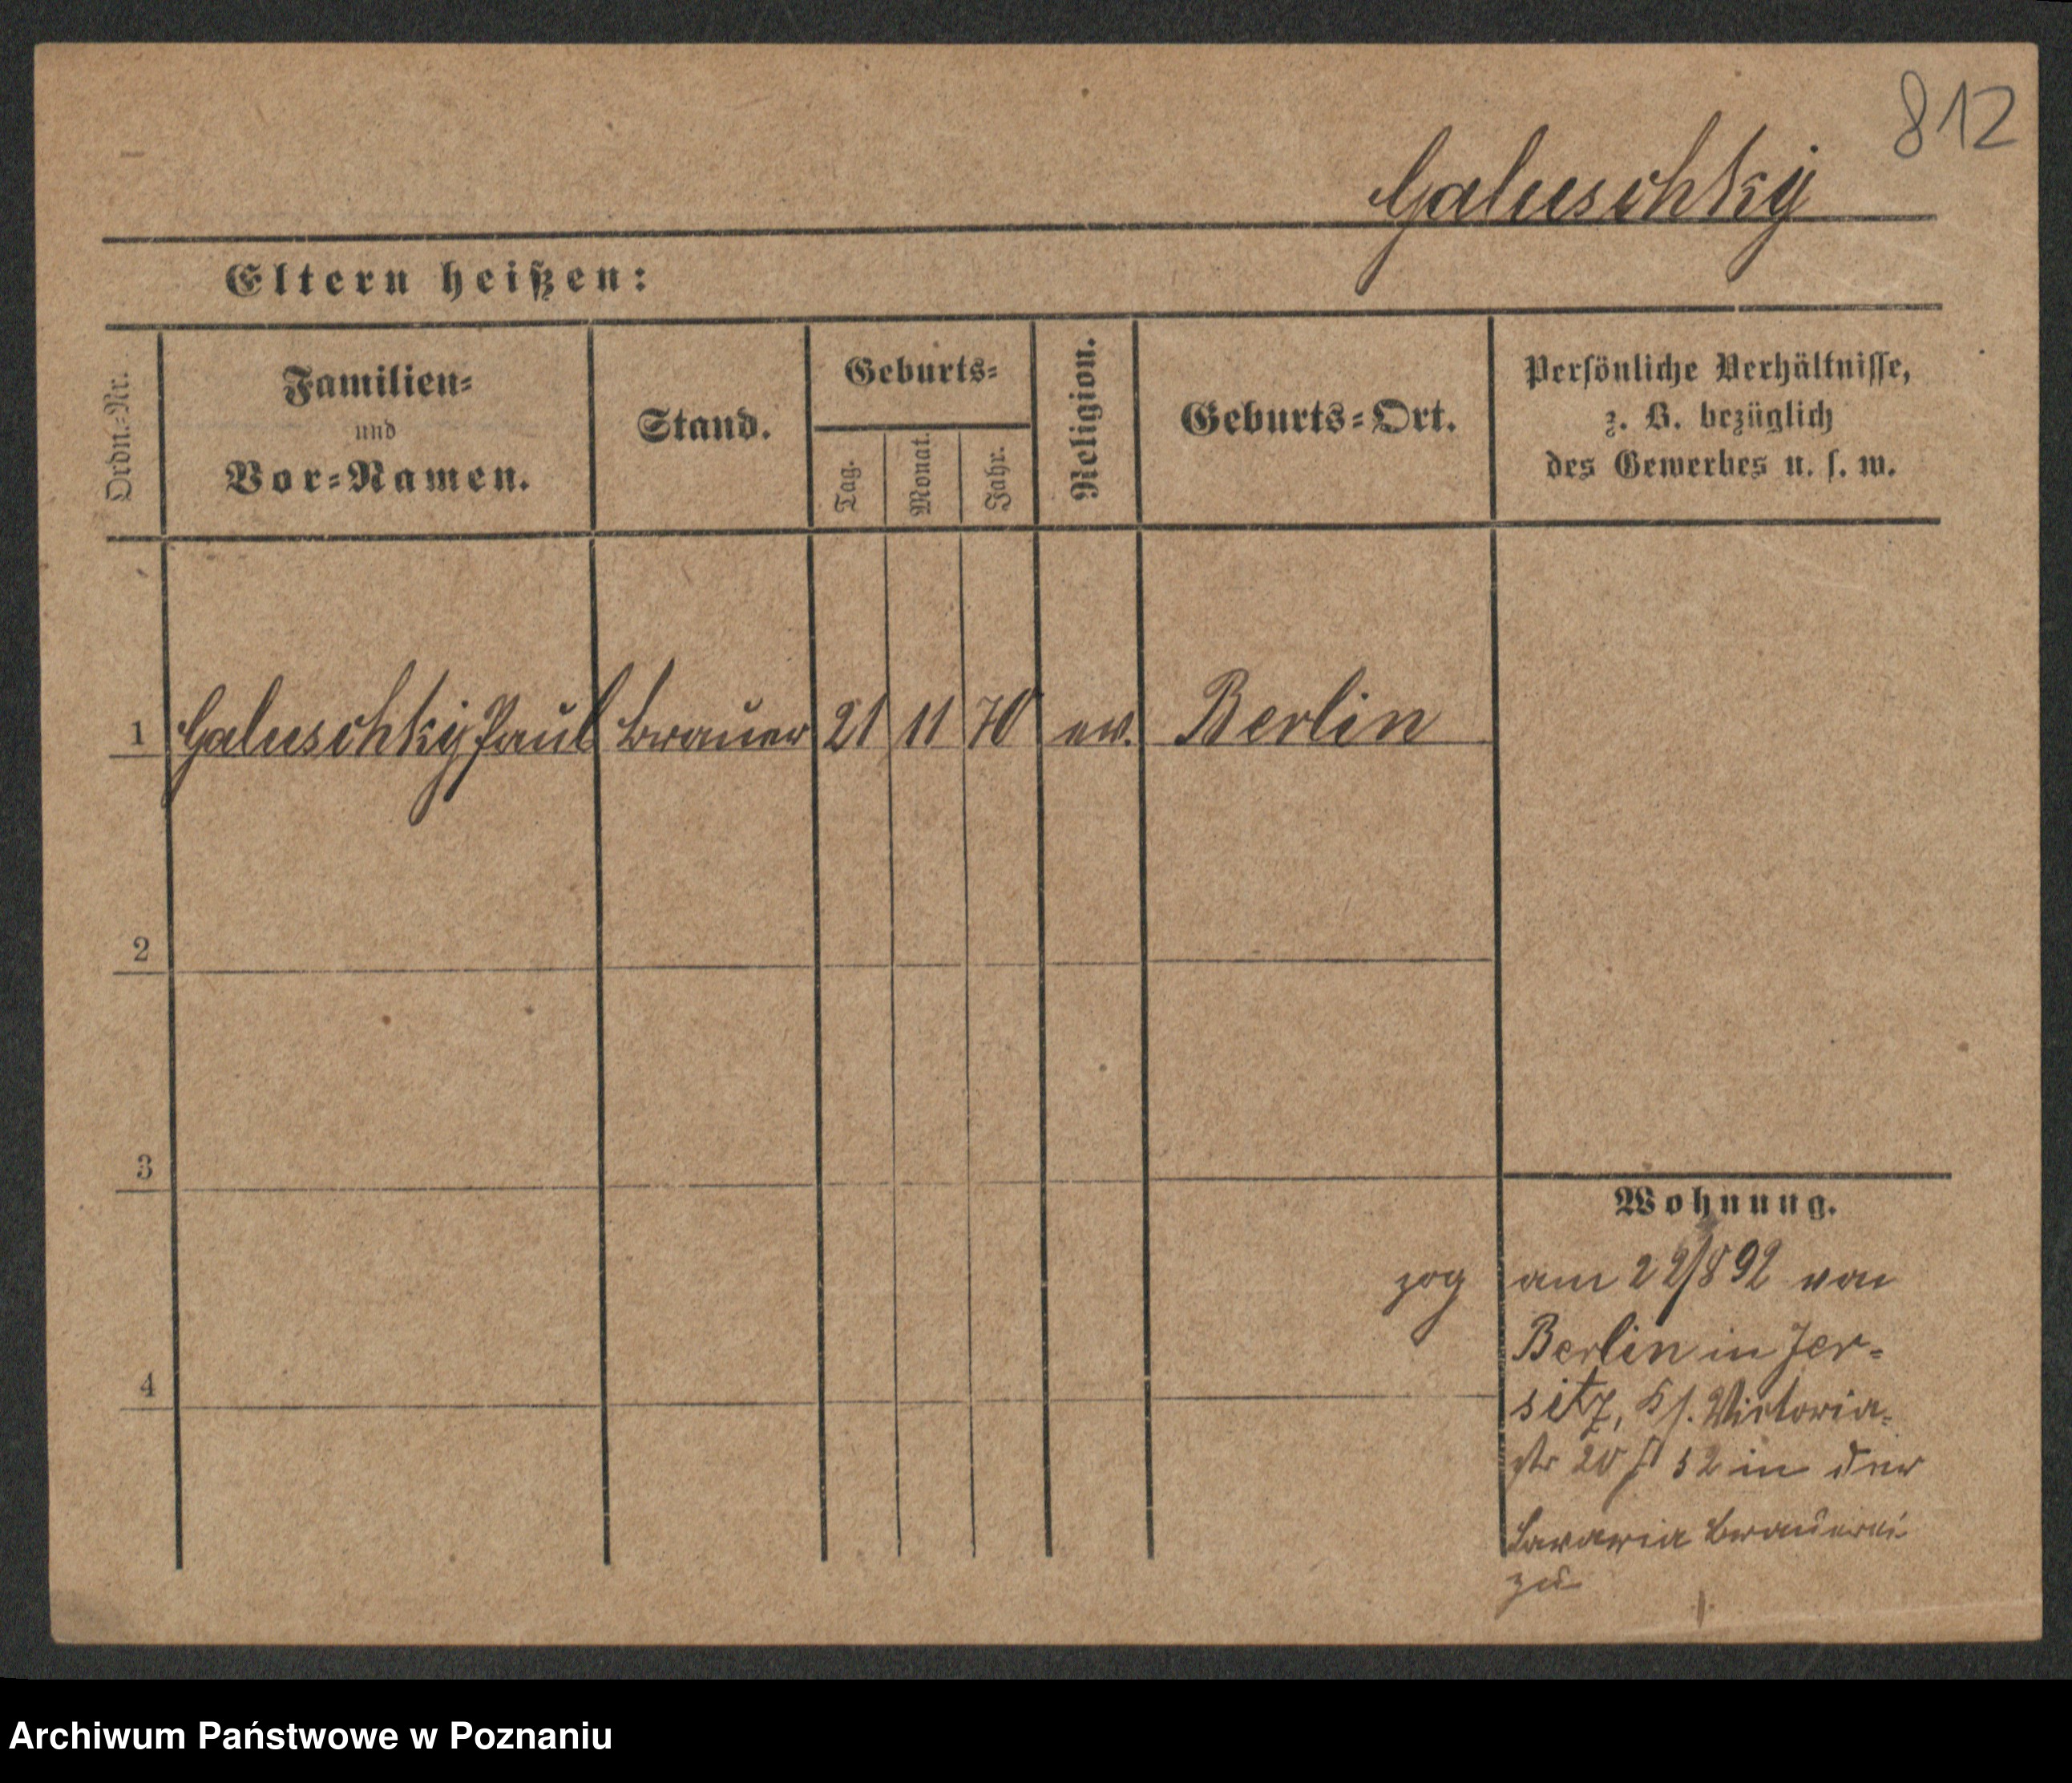 812
Galuschky
Eltern heißen:
Ordn.-Nr.
Familien- und Vor-Namen.
Stand.
Geburts-
Tag.
Monat.
Jahr.
Religion.
Geburts-Ort.
Persönliche Verhältnisse,
z. B. bezüglich
des Gewerbes u. s. w.
1 Galuschky Paul Brauer 21 11 70 ev. Berlin
2
3
4
Wohnung.
zog am 22/8 92 von
Berlin in Jer-
sitz, Victoria-
str 20 52 in der
Bavaria Brauerei
zu
Archiwum Państwowe w Poznaniu